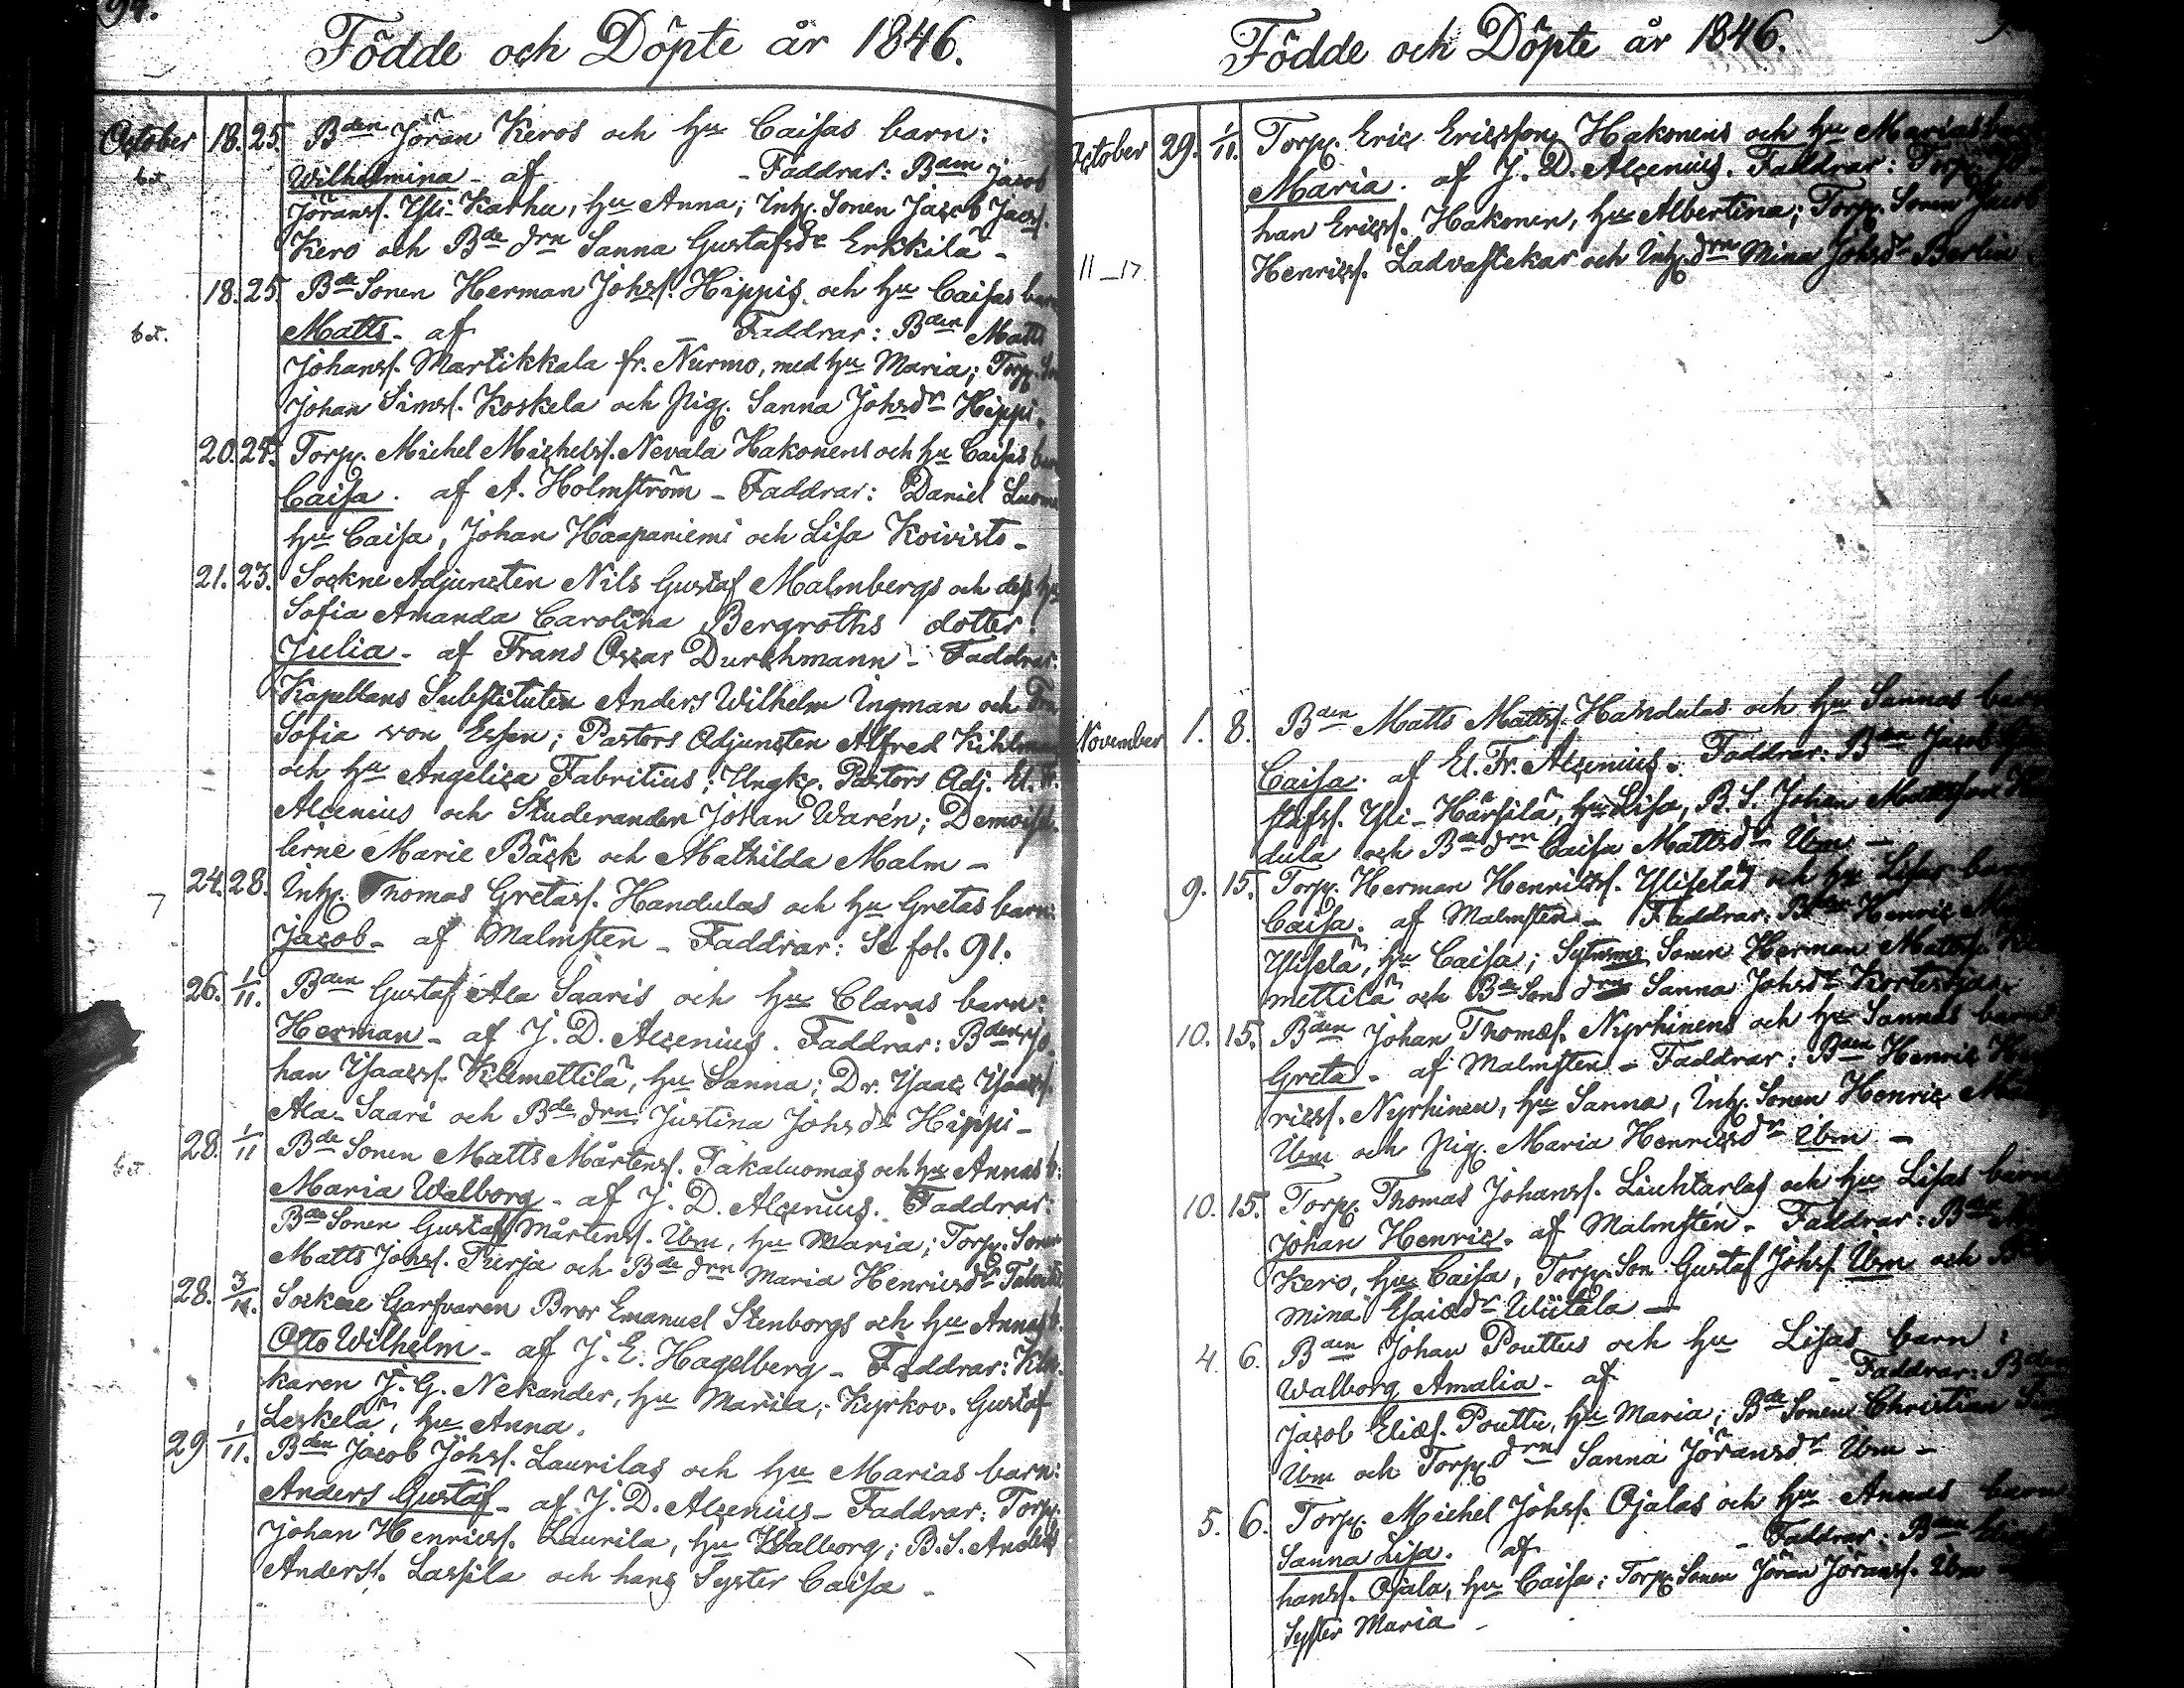 94.
Födde och Döpte år 1846.
October 18. 25. Bden Jöran Keros och hu Caisas barn:
bet. Wilhelmina - af - Faddrar: Bden Jacob
Jöranss. Yli-Karhu, hu Anna; Inh. Sonen Jacob Jacss.
Kero och Bde drn Sanna Gustafsdr Erkkilä -
18. 25. Bde Sonen Herman Johss. Hippis och hu Caisas barn
bet. Matts - af Faddrar: Bden Matts
Johanss. Martikkala fr. Nurmo, med hu Maria; Torp. Sn
Johan Simss. Koskela och Pig. Sanna Johsdr Hippi.
20. 25. Torp. Michel Michelss. Nevala Hakonens och hu Caisas barn
Caisa. af A. Holmström - Faddrar: Daniel Luoma
hu Caisa, Johan Haapaniemi och Lisa Koivisto -
21. 23. Sockne Adjuncten Nils Gustaf Malmbergs och dess hu
Sofia Amanda Carolina Bergroths dotter:
Julia - af Frans Oscar Durchmann - Faddrar:
Kapellans Substituten Anders Wilhelm Ingman och Fru
Sofia von Essen; Pastors Adjuncten Alfred Kihlman
och hu Angelica Fabritius; Ungk. Pastors Adj. El. Fr.
Alcenius och Studeranden Johan Warén; Demoisel-
lerne Marie Bäck och Mathilda Malm -
24. 28. Inh. Thomas Gretass. Handulas och hu Gretas barn:
Jacob - af Malmsten - Faddrar: Se fol. 91.
26. 1/11. Bden Gustaf Ala Saaris och hu Claras barn:
Herman - af J. D. Alcenius. Faddrar: Bden Jo-
han Isaacss. Klemettilä, hu Sanna; Dr. Isaac Isaacss.
Ala-Saari och Bde drn Justina Johsdr Hippi -
28. 1/11 Bde Sonen Matts Mårtenss. Takaluomas och hu Annas b:
bet. Maria Walborg - af J. D. Alcenius. Faddrar:
Bde Sonen Gustaf Mårtenss. Ibm, hu Maria; Torp. Sonen
Matts Johss. Turja och Bde drn Maria Henricsdr
28. 3/11. Sockne Garfvaren Bror Emanuel Stenborgs och hu Annas b.
Otto Wilhelm - af J. E. Hagelberg - Faddrar: Klo-
karen J. G. Nekander, hu Maria; Kyrkov. Gustaf
Leskelä, hu Anna.
29 1/11. Bden Jacob Johss. Laurilas och hu Marias barn:
Anders Gustaf - af J. D. Alcenius - Faddrar: Torp.
Johan Henricss. Laurila, hu Walborg; B. S. Anders
Anderss. Lassila och hans Syster Caisa -
Födde och Döpte år 1846.
October 29. 1/11. Torp. Eric Ericsson Hakonens och hu Marias barn
Maria. af J. D. Alcenius. Faddrar: Torp. Jo-
han Ericss. Hakonen, hu Albertina; Torp. Sonen Jacob
11_17 Henricss. Ladvastekar och Inh. drn Mina Johsdr Berlin
November 1. 8. Bden Matts Mattss. Handulas och hu Sannas barn
Caisa. af El. Fr. Alcenius. Faddrar: Bden Jacob Gu-
stafss. Yli-Härsilä, hu Lisa, B. S. Johan Mattsson Han-
dula och Bde drn Caisa Mattsdr Ibm -
9. 15. Torp. Herman Henricss. Ylisetäs och hu Lisas barn
Caisa. af Malmsten - Faddrar: Bden Henric
Ylisetä, hu Caisa; Sytnings Sonen Herman Mattss. Kle-
mettilä och Bde Sons drn Sanna Johsdr
10. 15. Bden Johan Thomass. Nyrhinens och hu Sannas barn
Greta - af Malmsten - Faddrar: Bden Henric Hen-
ricss. Nyrhinen, hu Sanna, Inh. Sonen Henric
Ibm och Pig. Maria Henricsdr Ibm -
10. 15. Torp. Thomas Johanss. Liuhtarlas och hu Lisas barn
Johan Henric. af Malmstén - Faddrar: Bden
Kero, hu Caisa, Torp. Son Gustaf Johss. Ibm och
Mina Esaiedr Wiitala -
4. 6. Bden Johan Pouttus och hu Lisas barn:
Walborg Amalia - af - Faddrar: Bden
Jacob Eliæs. Pouttu, hu Maria; Bde Sonen Christian
Ibm och Torp. drn Sanna Jöransdr Ibm -
5. 6. Torp. Michel Johss. Ojalas och hu Annas barn
Sanna Lisa. af - Faddrar: Bden
hanss. Ojala, hu Caisa; Torp. Sonen Jöran Jöranss. Ibm
Syster Maria -